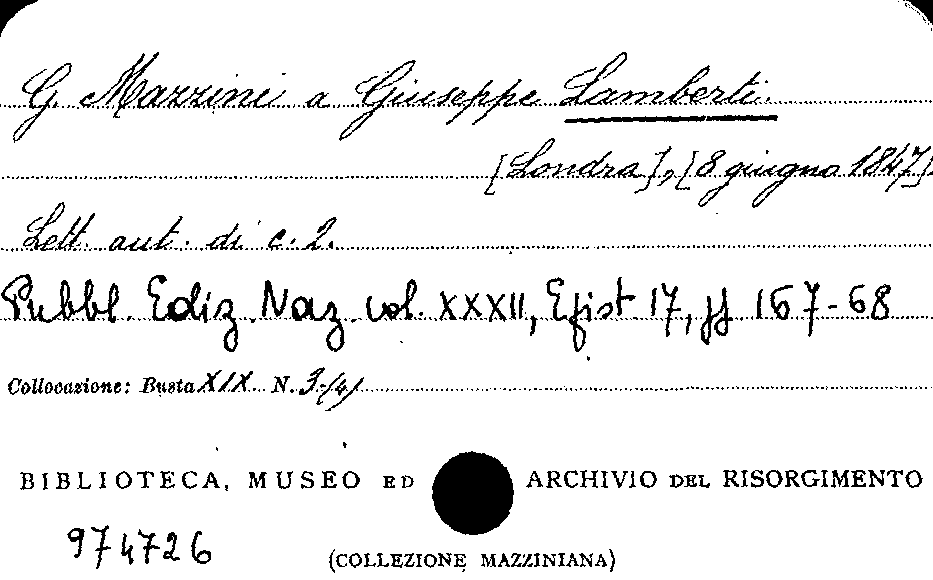 G. Mazzini a Giuseppe Lamberti.
[Londra], [8 giugno 1847].
Lett. aut. di c. 2.
Pubbl. Ediz. Naz. vol. XXXII, Epist. 17, pp. 167-68
Collocazione: Busta XIX N. 3-(4)
BIBLIOTECA, MUSEO ED ARCHIVIO DEL RISORGIMENTO
974726
(COLLEZIONE MAZZINIANA)